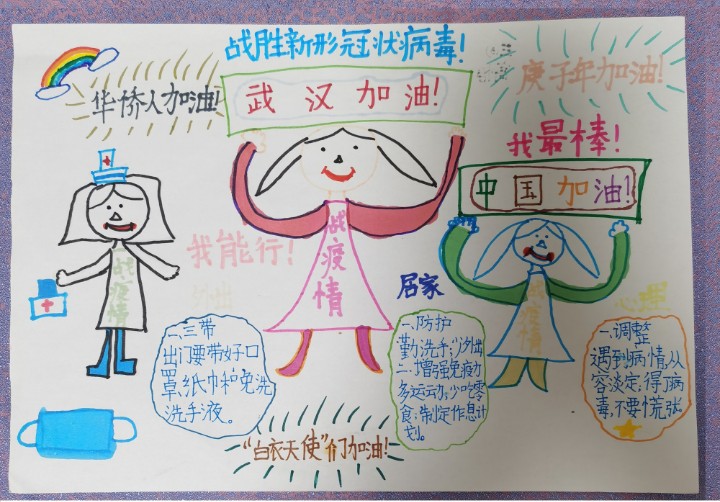 战胜新形冠状病毒!
华侨人加油!
武汉加油!
庚子年加油!
我最棒!
中国加油!
我能行!
战疫情
战疫情
战疫情
外出
居家
心理
二、三带
出门要带好口
罩,纸巾和免洗
洗手液。
一、防护
勤洗手;少外出
二、增强免疫力
多运动;少吃零
食;制定作息计
划。
一、调整
遇到病情,从
容淡定;得了病
毒,不要慌张
"白衣天使"们加油!